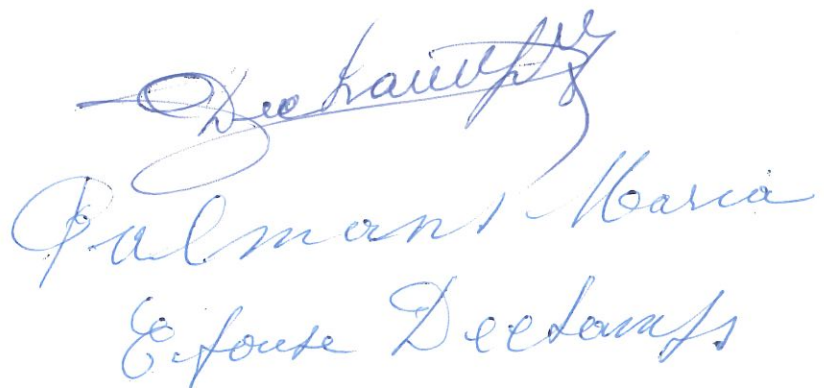 Deschamps
Pulmans Maria
Epouse Deschamps